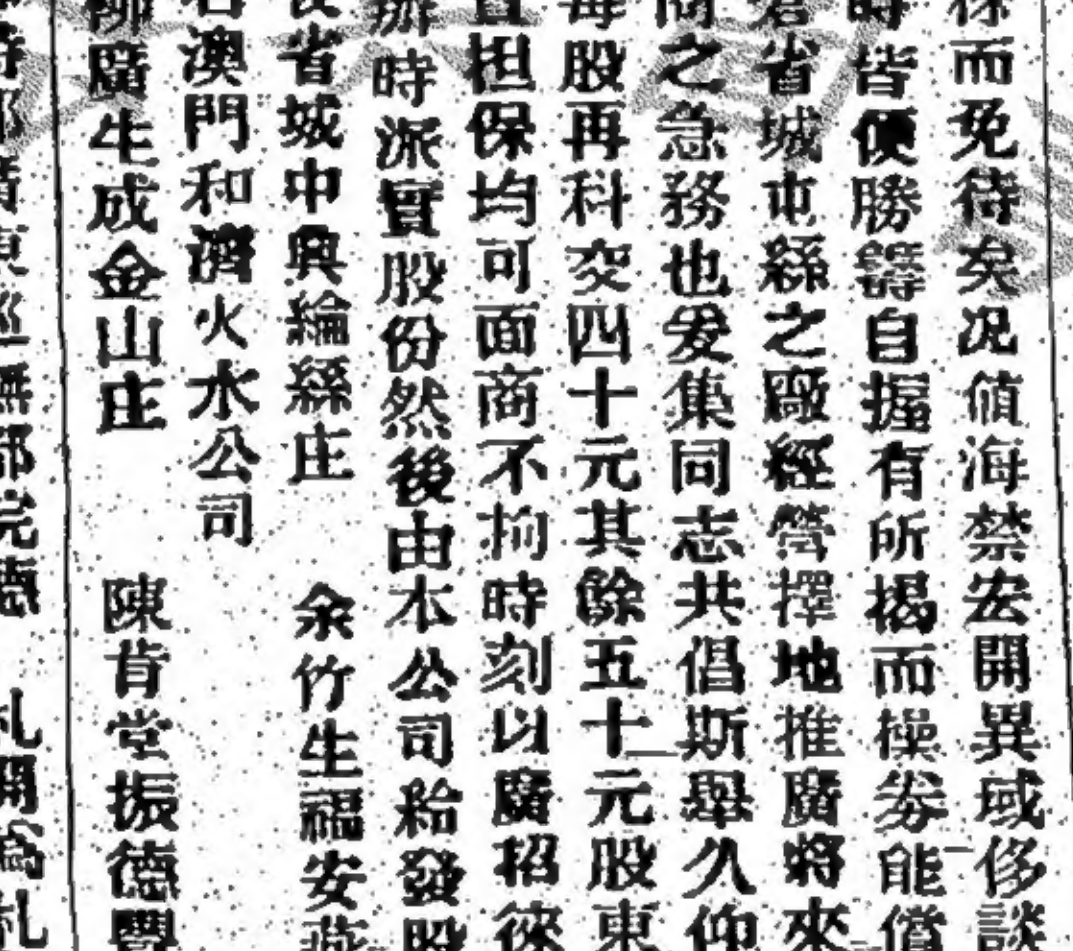 而免待矣况値海禁宏開異域侈談
時皆便勝籌自握有所揭而操劵能償
省城屯絲之廠經營擇地推廣將來
商之急務也爰集同志共倡斯舉久仰
每股再科交四十元其餘五十元股東
担保均可面商不拘時刻以廣招徠
辦時派實股份然後由本公司給發股
省城中興綸絲庄 余竹生福安
澳門和濟火水公司
廣生成金山庄 陳肯堂振德豐